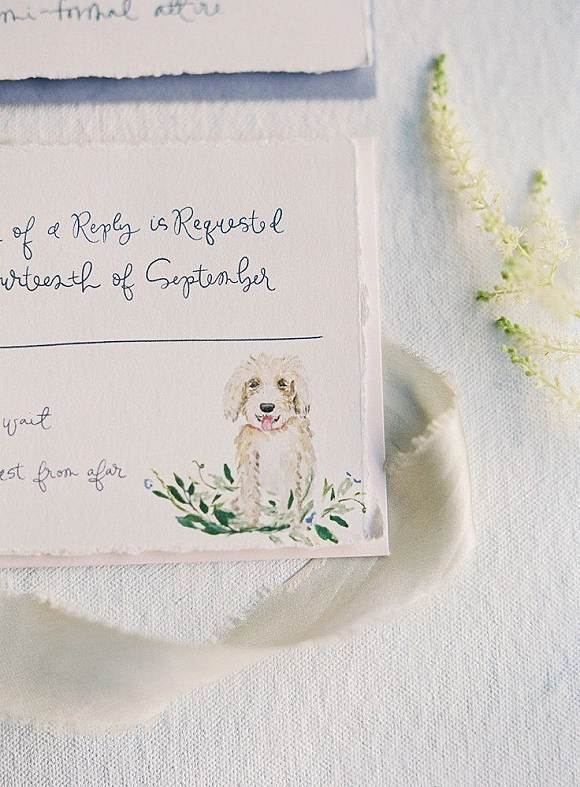 mi-formal attire
of a Reply is Requested
urteenth of September
wait
est from afar